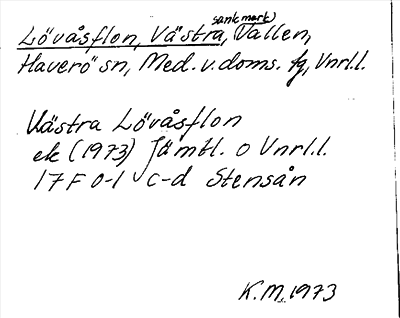 sank mark)
Lövåsflon, Västra, Vallen,
Haverö sn, Med. v. doms. fg, Vnrl.l.
Västra Lövåsflon
ek (1973) Jämtl. o Vnrl.l.
17 F 0-1 c-d Stensån
K.M. 1973